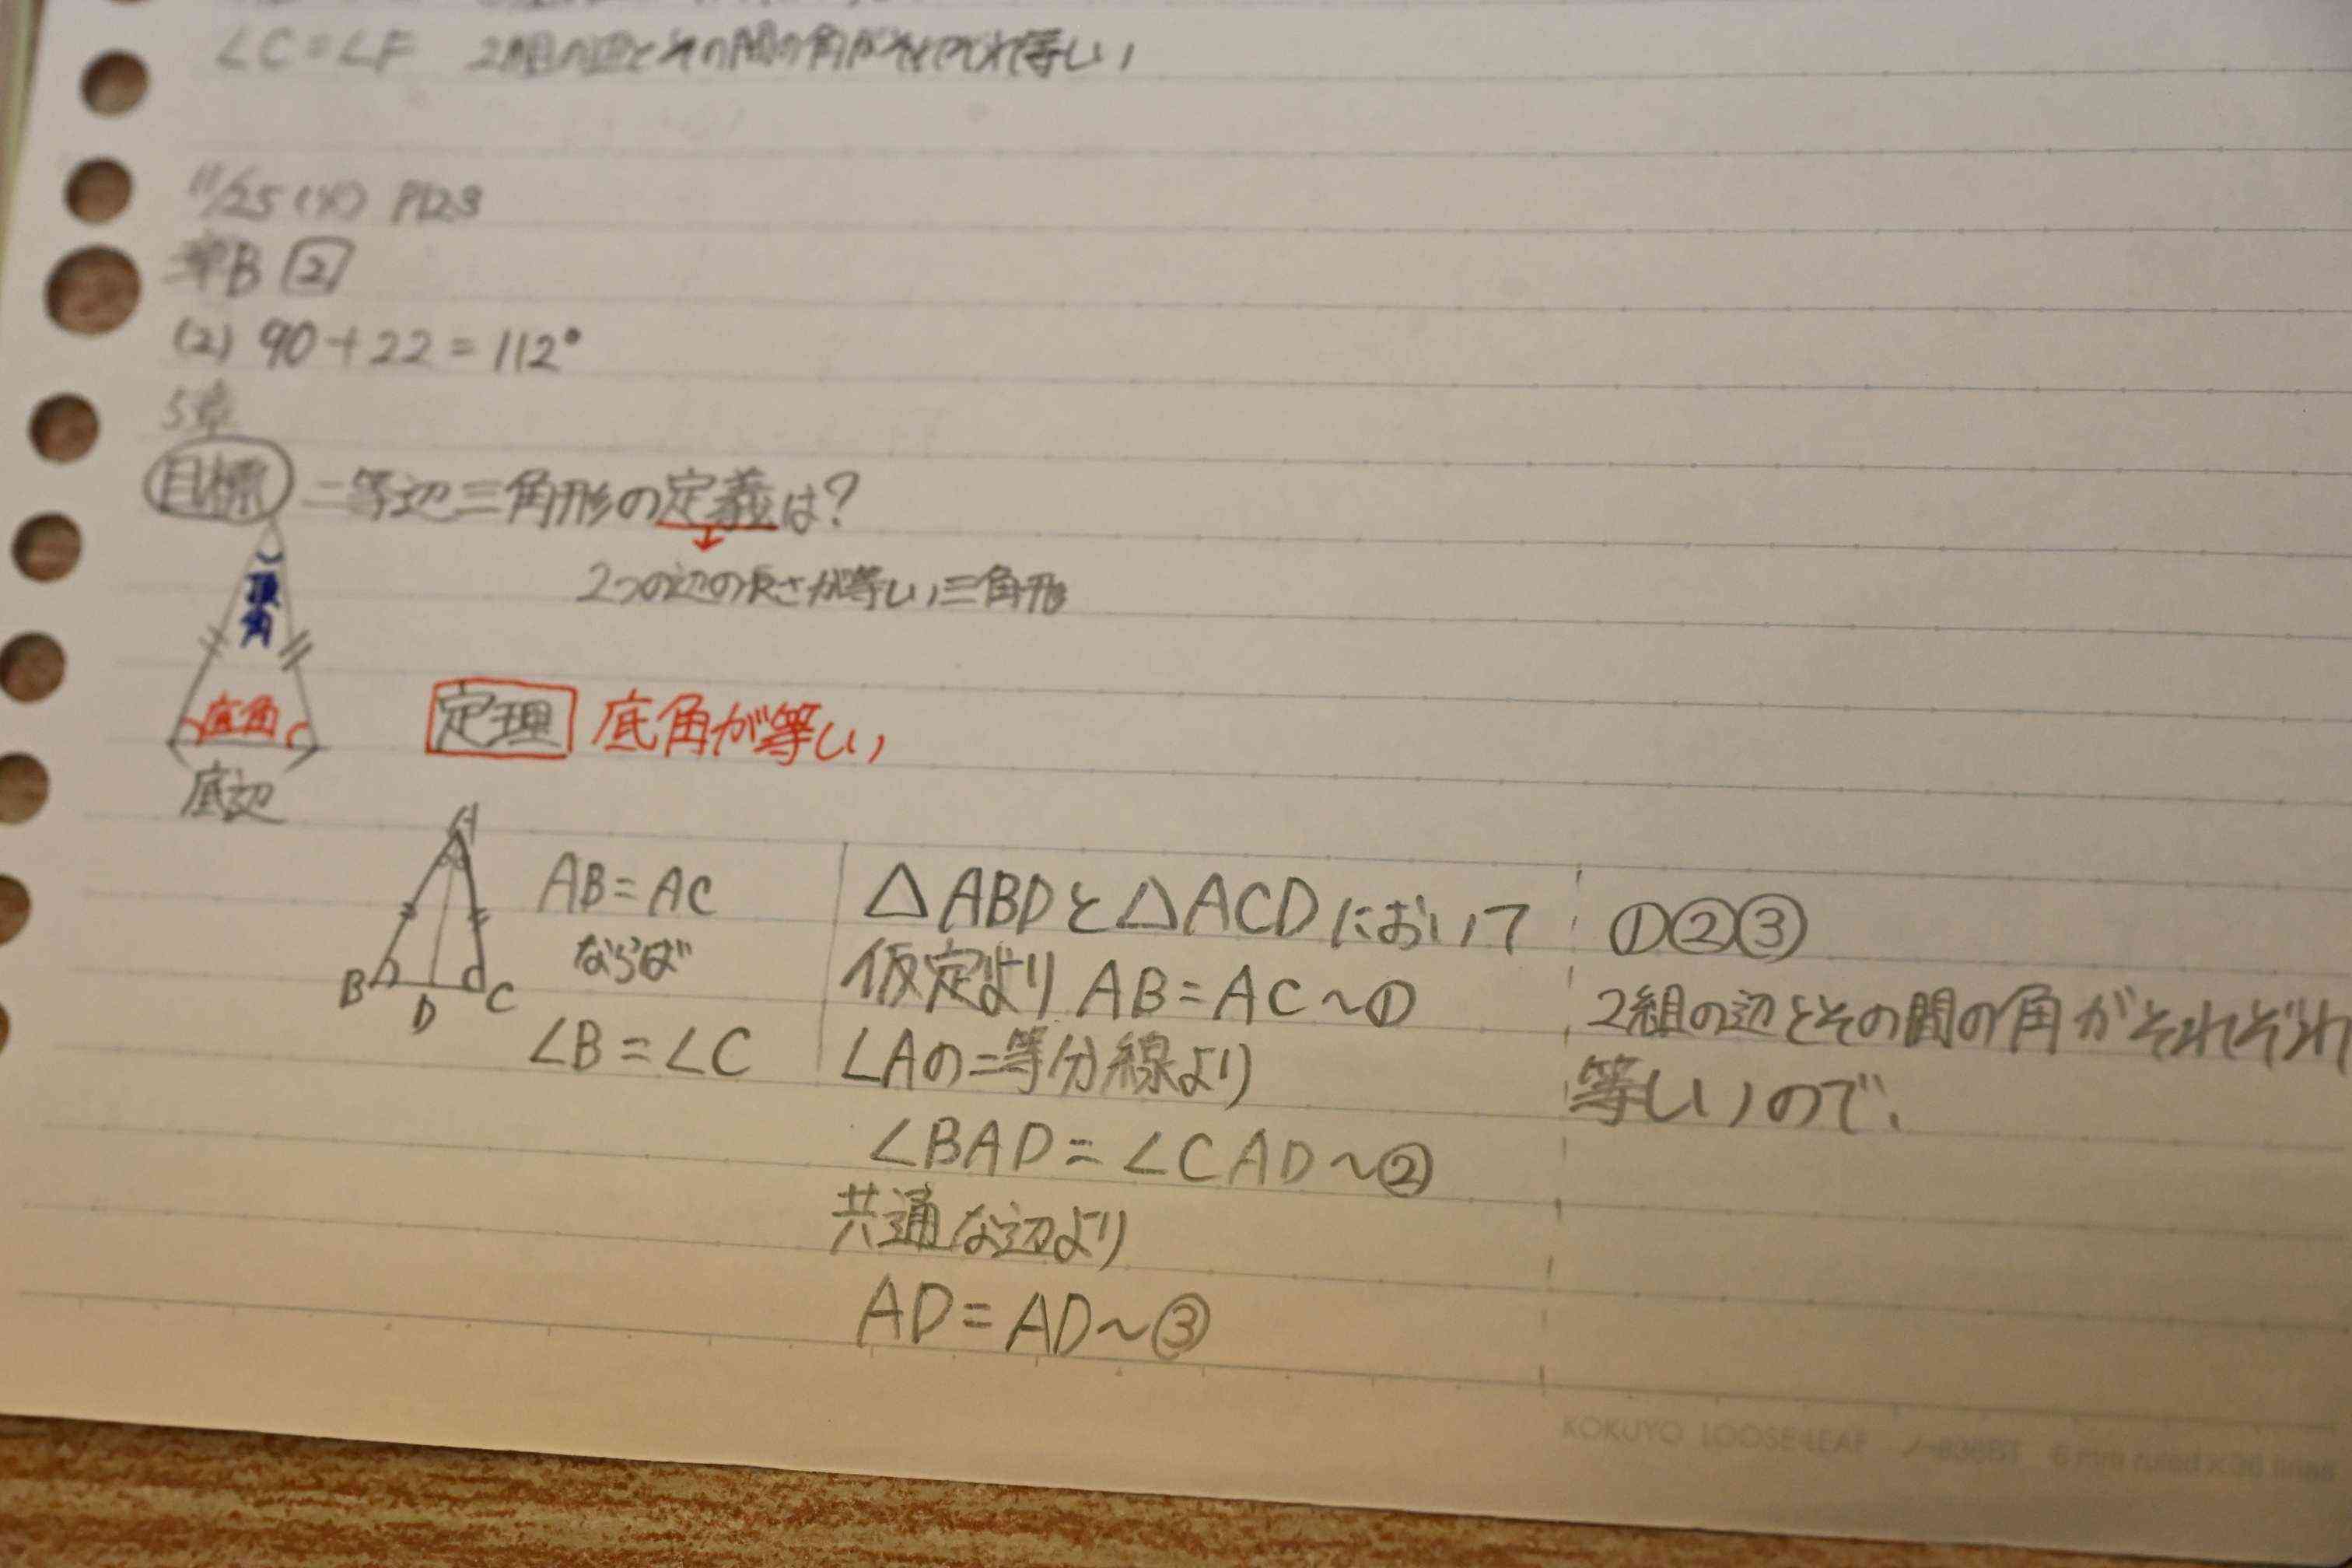 ∠C=∠F 2組の辺とその間の角がそれぞれ等しい
11/25(火) P123
章B 2
(2) 90+22=112°
5章
目標 二等辺三角形の定義は?
↓
2つの辺の長さが等しい三角形
頂角
底角
底辺
定理 底角が等しい
A
B
D
C
AB=AC
ならば
∠B=∠C
△ABDと△ACDにおいて
仮定より AB=AC~①
∠Aの二等分線より
∠BAD=∠CAD~②
共通な辺より
AD=AD~③
①②③
2組の辺とその間の角がそれぞれ
等しいので、
KOKUYO LOOSE-LEAF